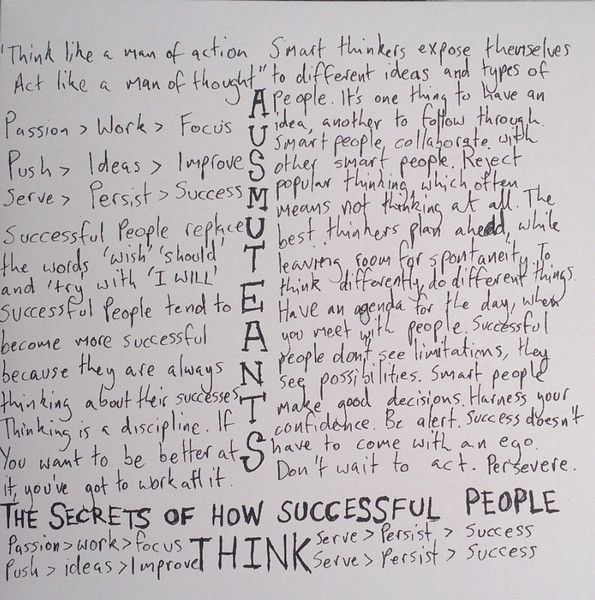 'Think like a man of action
Act like a man of thought"
Passion > Work > Focus
Push > Ideas > Improve
Serve > Persist > Success
Successful People replace
the words 'wish' 'should'
and 'try with 'I WILL'
Successful People tend to
become more successful
because they are always
thinking about their successes
Thinking is a discipline. If
You want to be better at
it, you've got to work aft it.
AUSMUTEANTS
Smart thinkers expose themselves
to different ideas and types of
People. It's one thing to have an
idea, another to follow through.
Smart people collaborate with
other smart people. Reject
popular thinking, which often
means not thinking at all. The
best thinkers plan ahead, while
leaving room for spontaneity. To
think differently, do different things.
Have an agenda for the day, when
you meet with people. Successful
people don't see limitations, they
see possibilities. Smart people
make good decisions. Harness your
confidence. Be alert. Success doesn't
have to come with an ego.
Don't wait to act. Persevere.
THE SECRETS OF HOW SUCCESSFUL PEOPLE
THINK
Passion > work > focus
Push > ideas > Improve
Serve > Persist > Success
Serve > Persist > Success